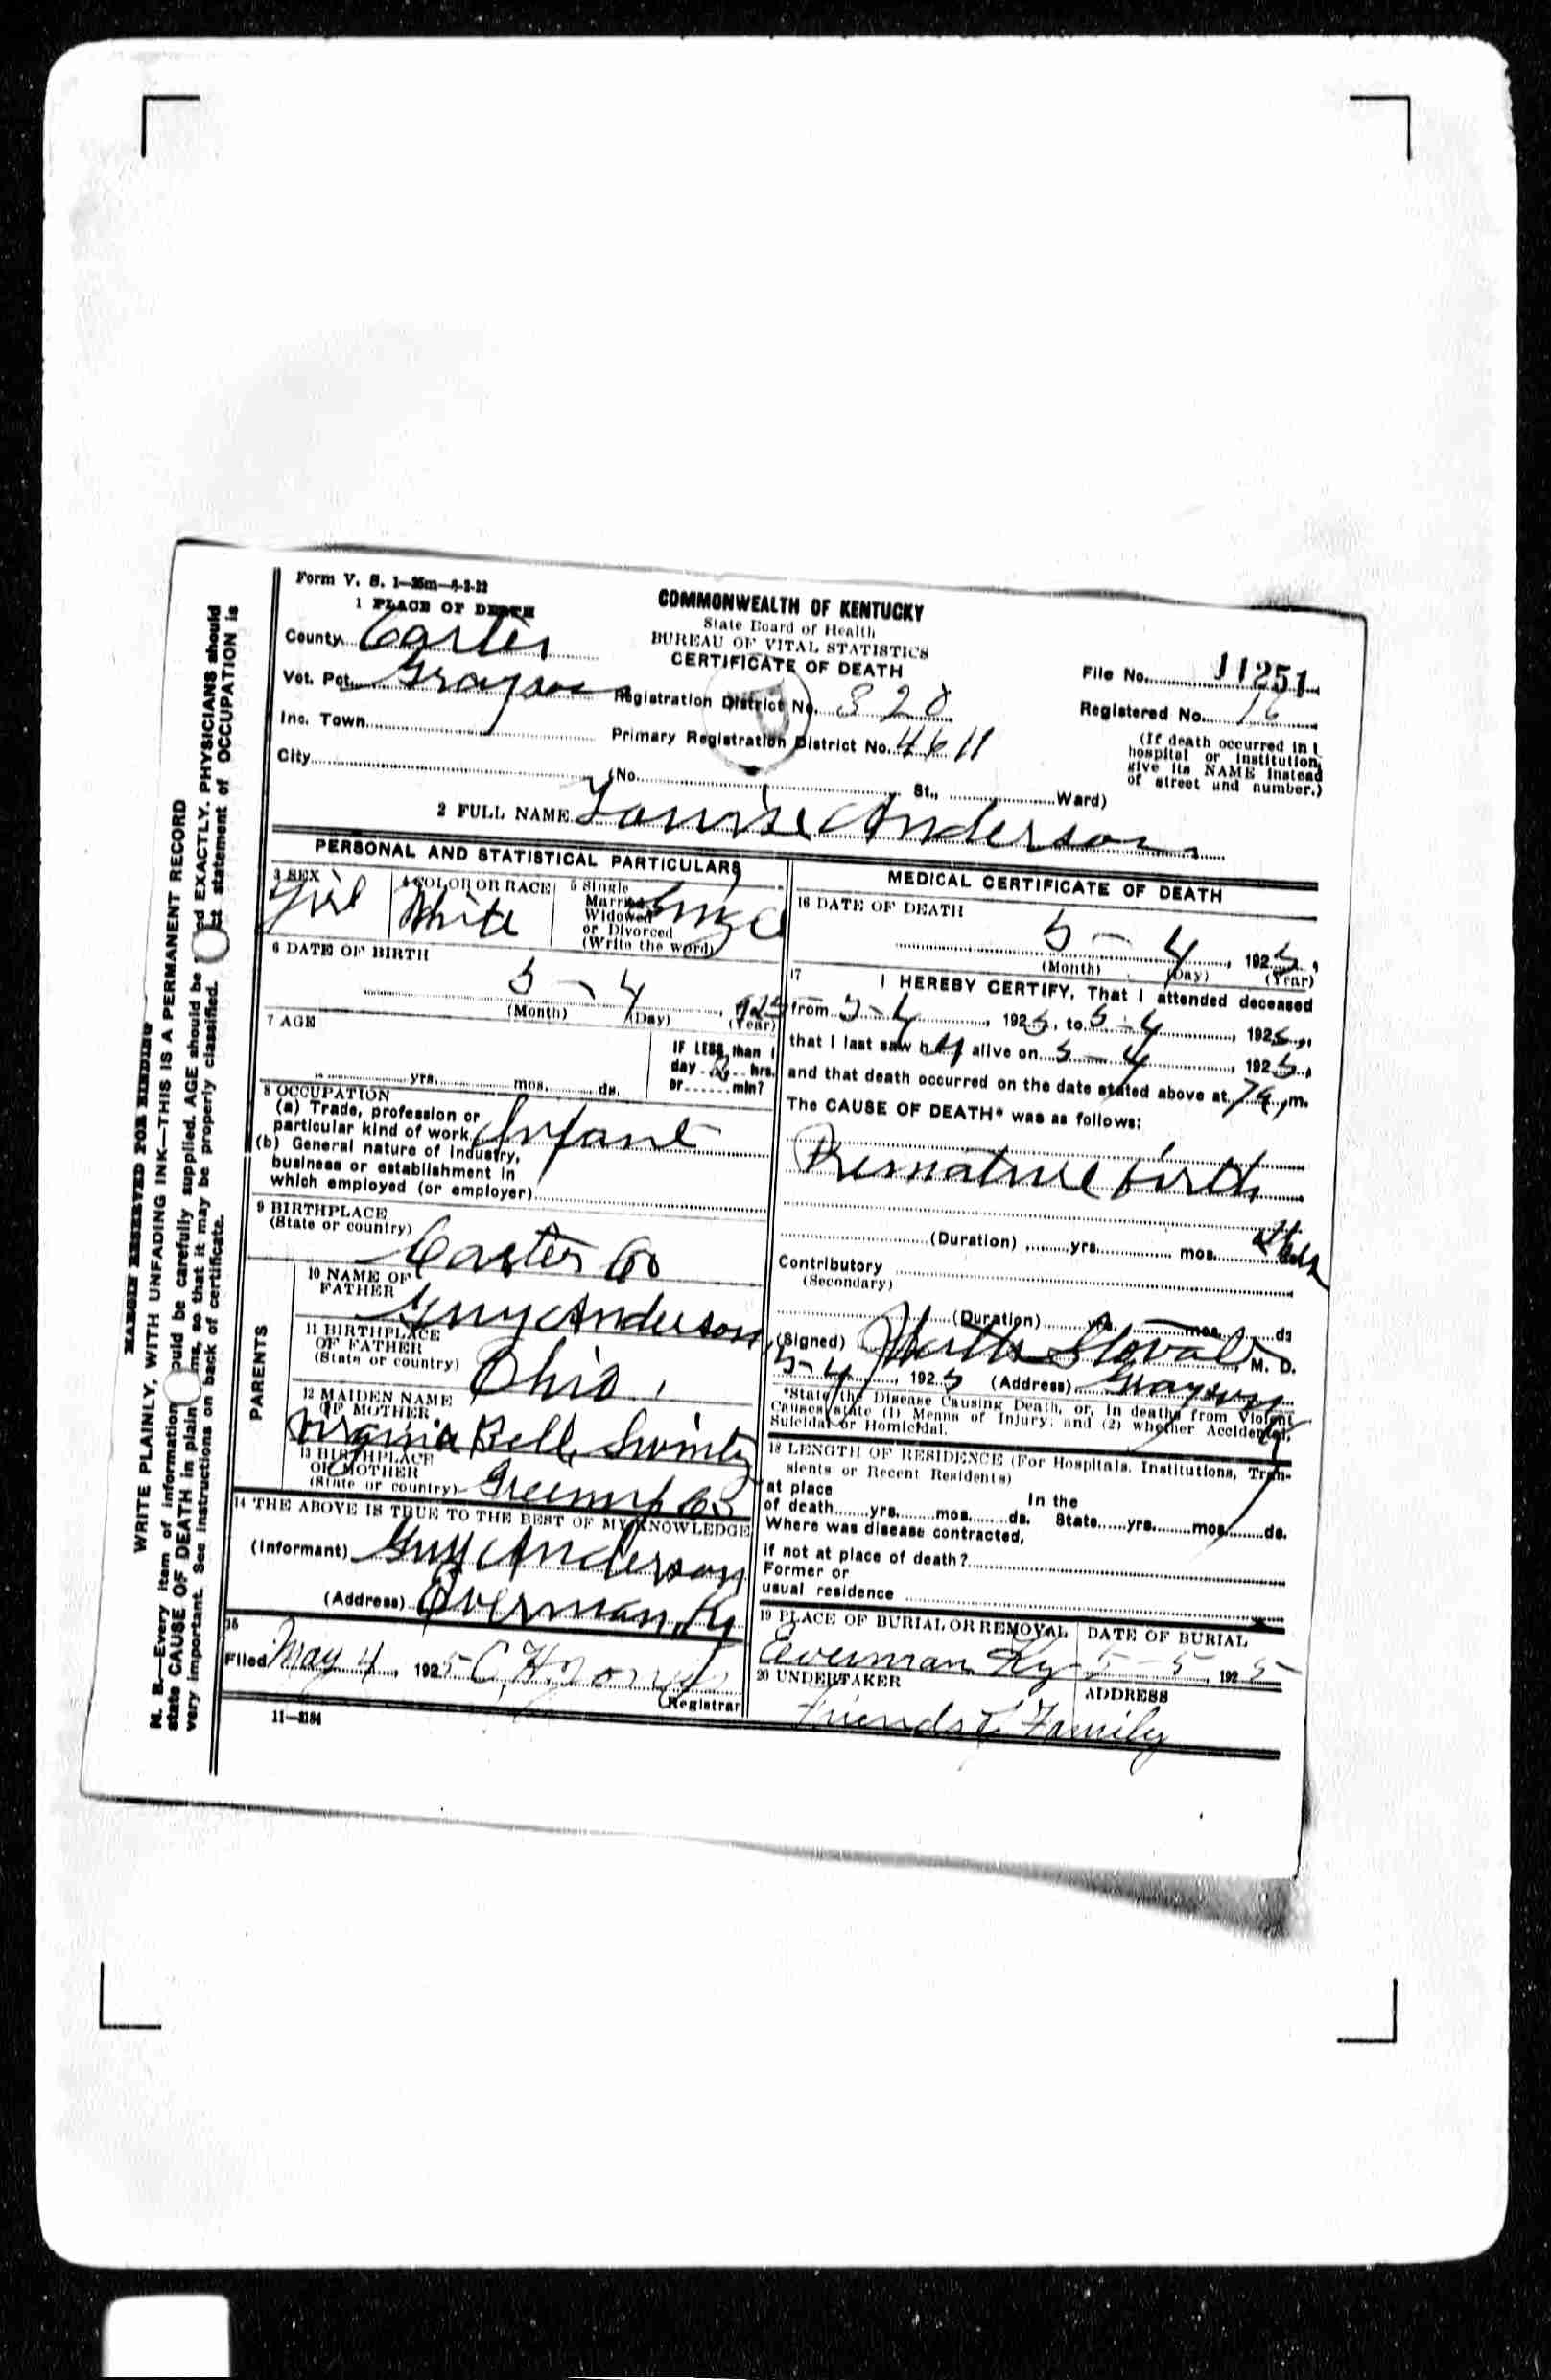 Form V. S. 1—25m—8-2-22
1 PLACE OF DEATH
County Carter
Vot. Pct. Grayson
Inc. Town
City
COMMONWEALTH OF KENTUCKY
State Board of Health
BUREAU OF VITAL STATISTICS
CERTIFICATE OF DEATH
Registration District No. 328
Primary Registration District No. 4611
(No. St., Ward)
File No. 11251
Registered No. 16
(If death occurred in
hospital or institution,
give its NAME instead
of street und number.)
2 FULL NAME Louise Anderson
PERSONAL AND STATISTICAL PARTICULARS
3 SEX
Girl
4 COLOR OR RACE
White
5 Single
Married
Widowed
or Divorced
(Write the word)
6 DATE OF BIRTH
5 - 4 1925
(Month) (Day) (Year)
7 AGE
yrs. mos. ds.
IF LESS than 1
day hrs.
or min?
8 OCCUPATION
(a) Trade, profession or
particular kind of work Infant
(b) General nature of Industry,
business or establishment in
which employed (or employer)
9 BIRTHPLACE
(State or country) Carter Co
PARENTS
10 NAME OF
FATHER
Guy Anderson
11 BIRTHPLACE
OF FATHER
(State or country) Ohio
12 MAIDEN NAME
OF MOTHER
Virginia Bell
13 BIRTHPLACE
OF MOTHER
(State or country) Greenup Co
14 THE ABOVE IS TRUE TO THE BEST OF MY KNOWLEDGE
(Informant) Guy Anderson
(Address) Everman, Ky
15
Filed May 4, 1925
Registrar
11—2184
MEDICAL CERTIFICATE OF DEATH
16 DATE OF DEATH
5 - 4, 1925,
(Month) (Day) (Year)
17 I HEREBY CERTIFY, That I attended deceased
from 5-4, 1925, to 5-4, 1925,
that I last saw her alive on 5-4, 1925,
and that death occurred on the date stated above at m.
The CAUSE OF DEATH* was as follows:
Premature birth
(Duration) yrs. mos. ds
Contributory
(Secondary)
(Duration) yrs. mos. ds
(Signed) Stovall, M. D.
5-4, 1925 (Address) Grayson
*State the Disease Causing Death, or, in deaths from Violent
Causes state (1) Means of Injury; and (2) whether Accidental,
Suicidal or Homicidal.
18 LENGTH OF RESIDENCE (For Hospitals, Institutions, Tran-
sients or Recent Residents)
at place In the
of death yrs. mos. ds. State yrs. mos. ds.
Where was disease contracted,
if not at place of death?
Former or
usual residence
19 PLACE OF BURIAL OR REMOVAL
Everman Ky
DATE OF BURIAL
5-5, 1925
20 UNDERTAKER
Friends & Family
ADDRESS
MARGIN RESERVED FOR BINDING
WRITE PLAINLY, WITH UNFADING INK—THIS IS A PERMANENT RECORD
N. B.—Every item of information should be carefully supplied. AGE should be EXACTLY. PHYSICIANS should
state CAUSE OF DEATH in plain so that it may be properly classified. statement of OCCUPATION is
very important. See instructions on back of certificate.